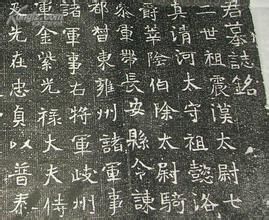 君墓誌銘
二世祖震漢太尉七
真清河太守祖懿洛
爵華陰伯除太尉騎
叅軍長安縣令諫
都督東雍州諸軍事
諸軍事右將軍岐州
軍金紫光祿大夫侍
光在忠貞以普泰